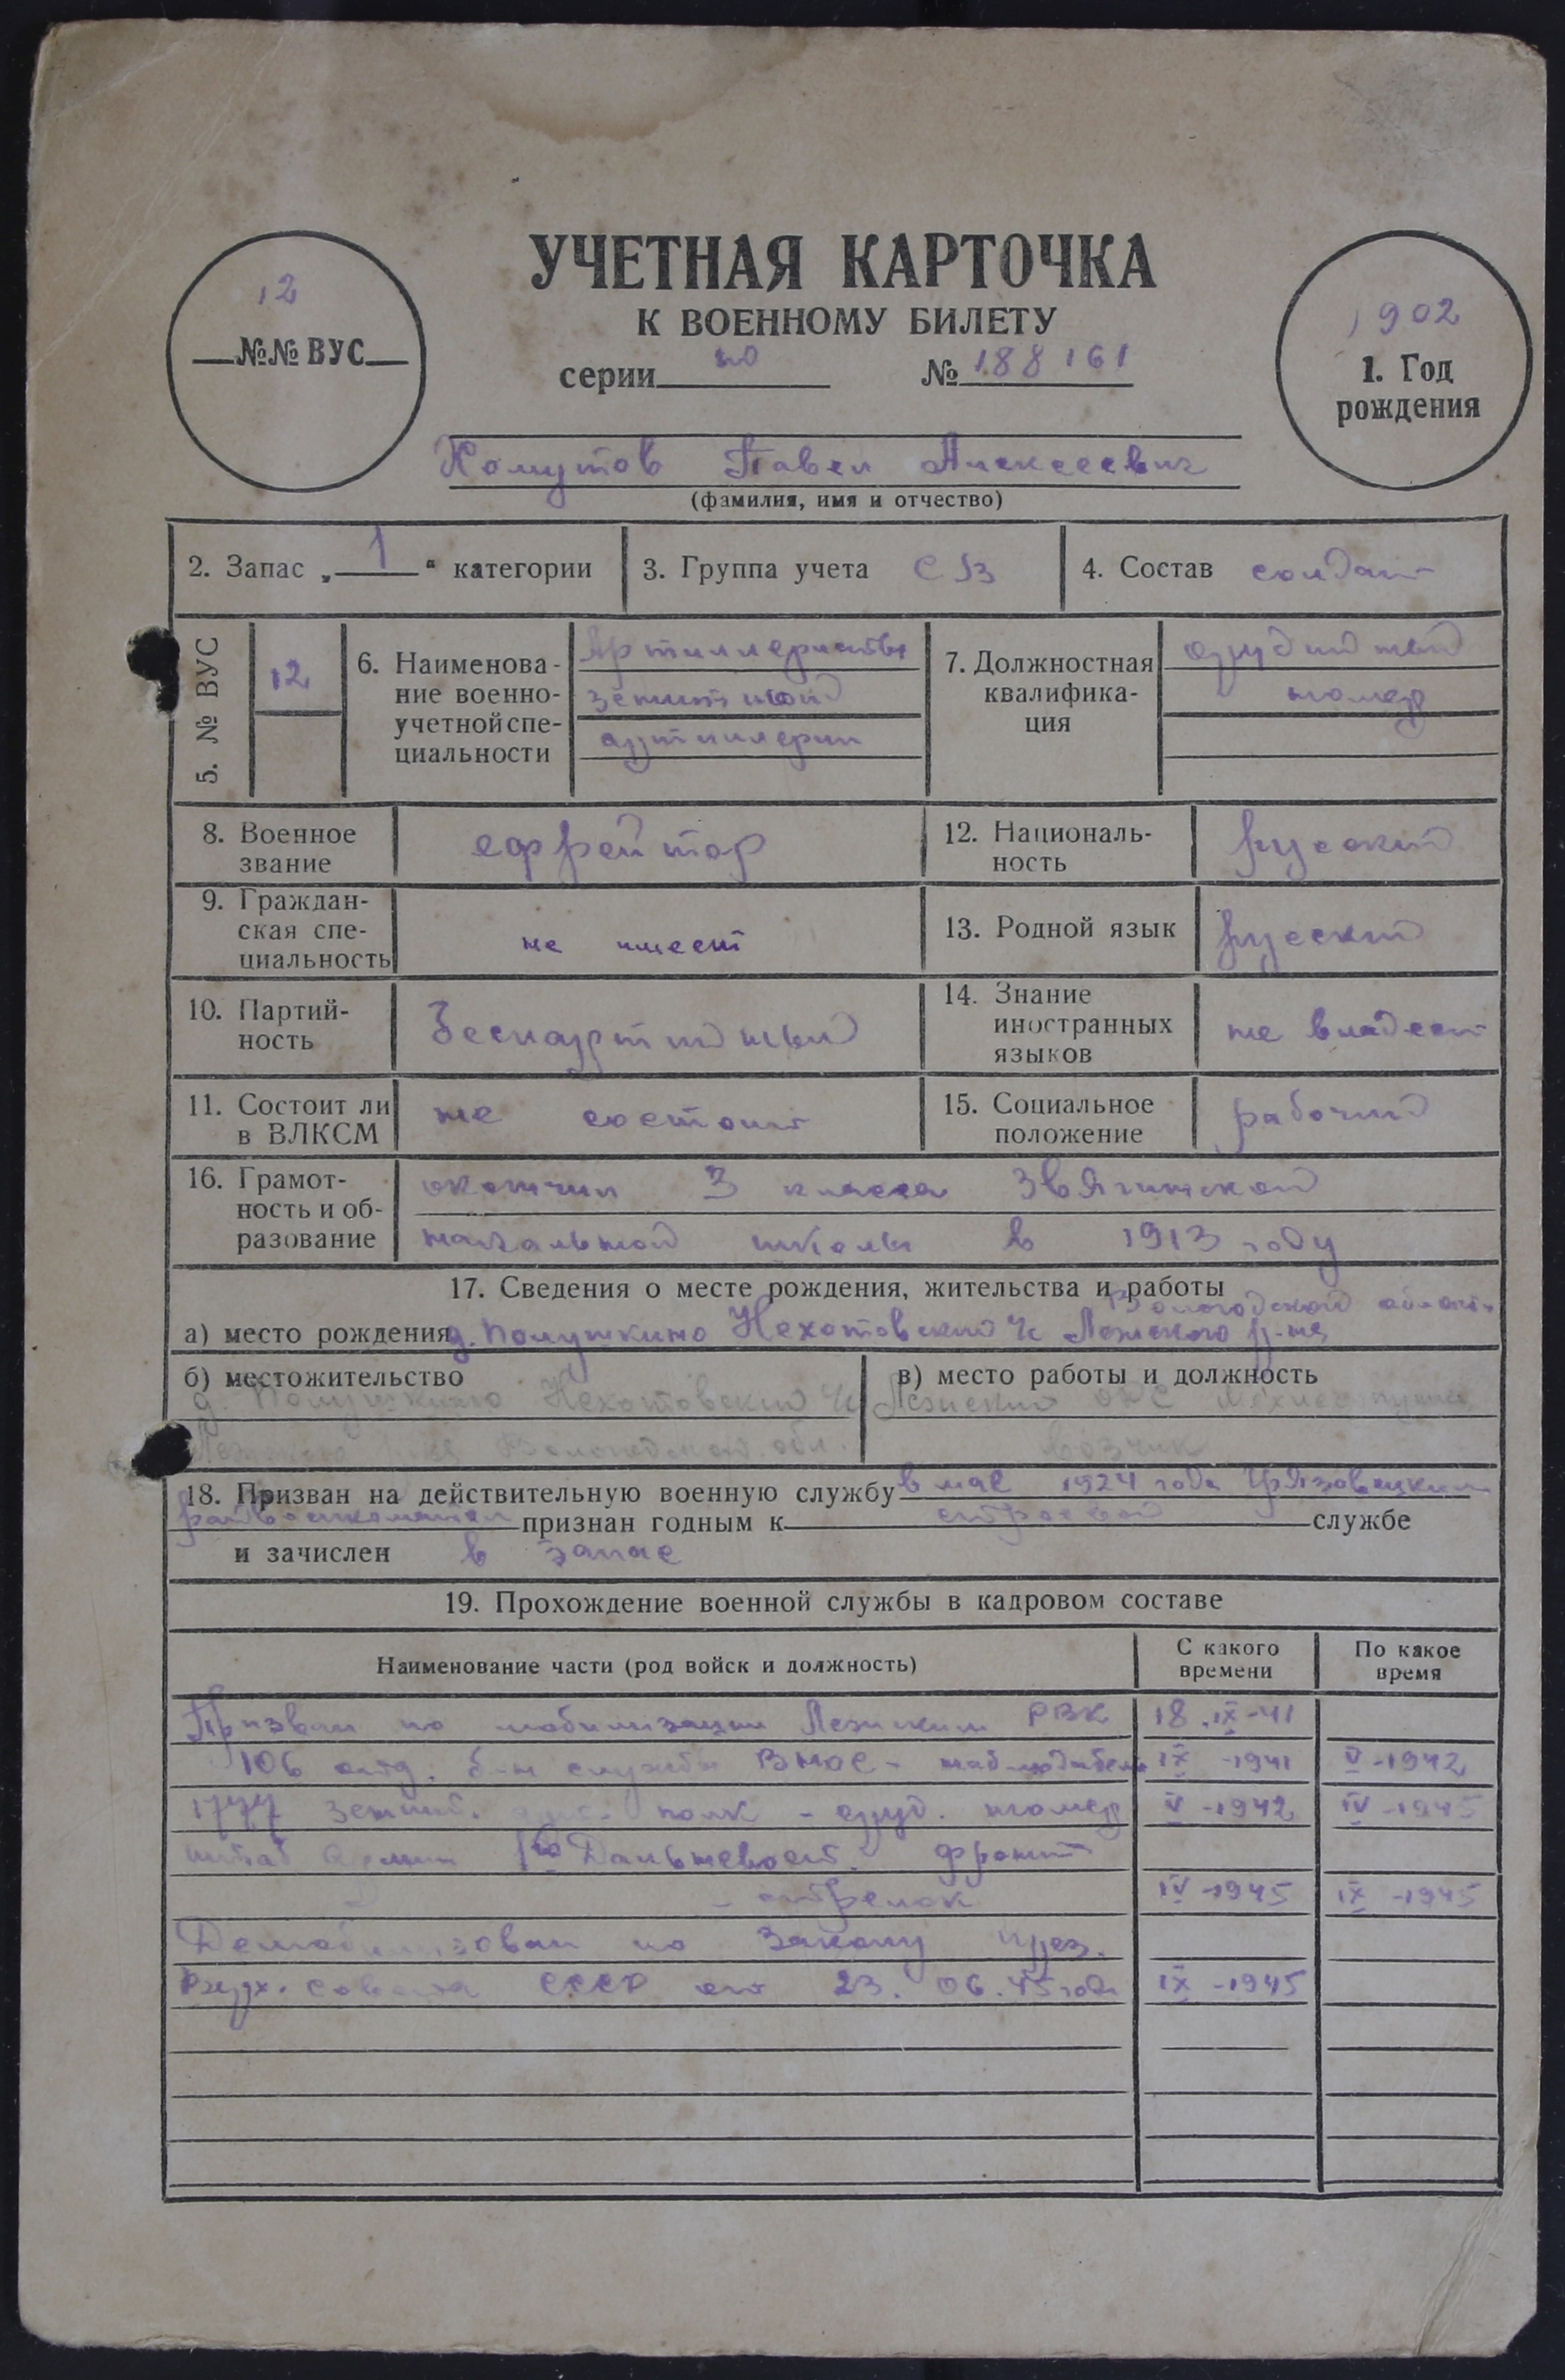 УЧЕТНАЯ КАРТОЧКА
К ВОЕННОМУ БИЛЕТУ
серии по № 188161
12
№№ ВУС
1902
1. Год
рождения
Хомутов Павел Алексеевич
(фамилия, имя и отчество)
2. Запас „ 1 “ категории
3. Группа учета СВ
4. Состав солдат
5. № ВУС
12
6. Наименова-
ние военно-
учетной спе-
циальности
Артиллериисты
зенитной
артиллерии
7. Должностная
квалифика-
ция
орудийный
номер
8. Военное
звание
ефрейтор
12. Националь-
ность
русский
9. Граждан-
ская спе-
циальность
не имеет
13. Родной язык
русский
10. Партий-
ность
беспартийный
14. Знание
иностранных
языков
не владеет
11. Состоит ли
в ВЛКСМ
не состоит
15. Социальное
положение
рабочий
16. Грамот-
ность и об-
разование
окончил 3 класса Звягинской
начальной школы в 1913 году
17. Сведения о месте рождения, жительства и работы
Вологодской области
а) место рождения д. Полушкино Нехотовский с/с Лежского р-на
б) местожительство
д. Полушкино Нехотовский с/с
Лежского р-на Вологодской обл.
в) место работы и должность
Лежский ОРС
возчик
18. Призван на действительную военную службу в мае 1924 года Грязовецким
райвоенкоматом признан годным к строевой службе
и зачислен в запас
19. Прохождение военной службы в кадровом составе
Наименование части (род войск и должность)
С какого
времени
По какое
время
Призван по мобилизации Лежским РВК 18.IX-41
106 отд. б-н службы ВНОС - наблюдатель IX-1941 V-1942
1777 зенит. арт. полк - оруд. номер V-1942 IV-1945
штаб армии 1го Дальневост. фронт
- стрелок IV-1945 IX-1945
Демобилизован по Закону през.
Верх. Совета СССР от 23.06.45 года IX-1945